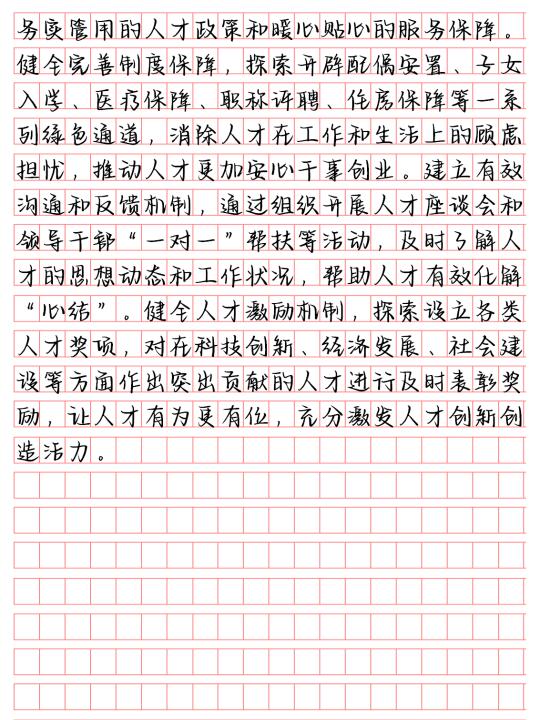 务实管用的人才政策和暖心贴心的服务保障。
健全完善制度保障，探索开辟配偶安置、子女
入学、医疗保障、职称评聘、住房保障等一系
列绿色通道，消除人才在工作和生活上的顾虑
担忧，推动人才更加安心干事创业。建立有效
沟通和反馈机制，通过组织开展人才座谈会和
领导干部“一对一”帮扶等活动，及时了解人
才的思想动态和工作状况，帮助人才有效化解
“心结”。健全人才激励机制，探索设立各类
人才奖项，对在科技创新、经济发展、社会建
设等方面作出突出贡献的人才进行及时表彰奖
励，让人才有为更有位，充分激发人才创新创
造活力。